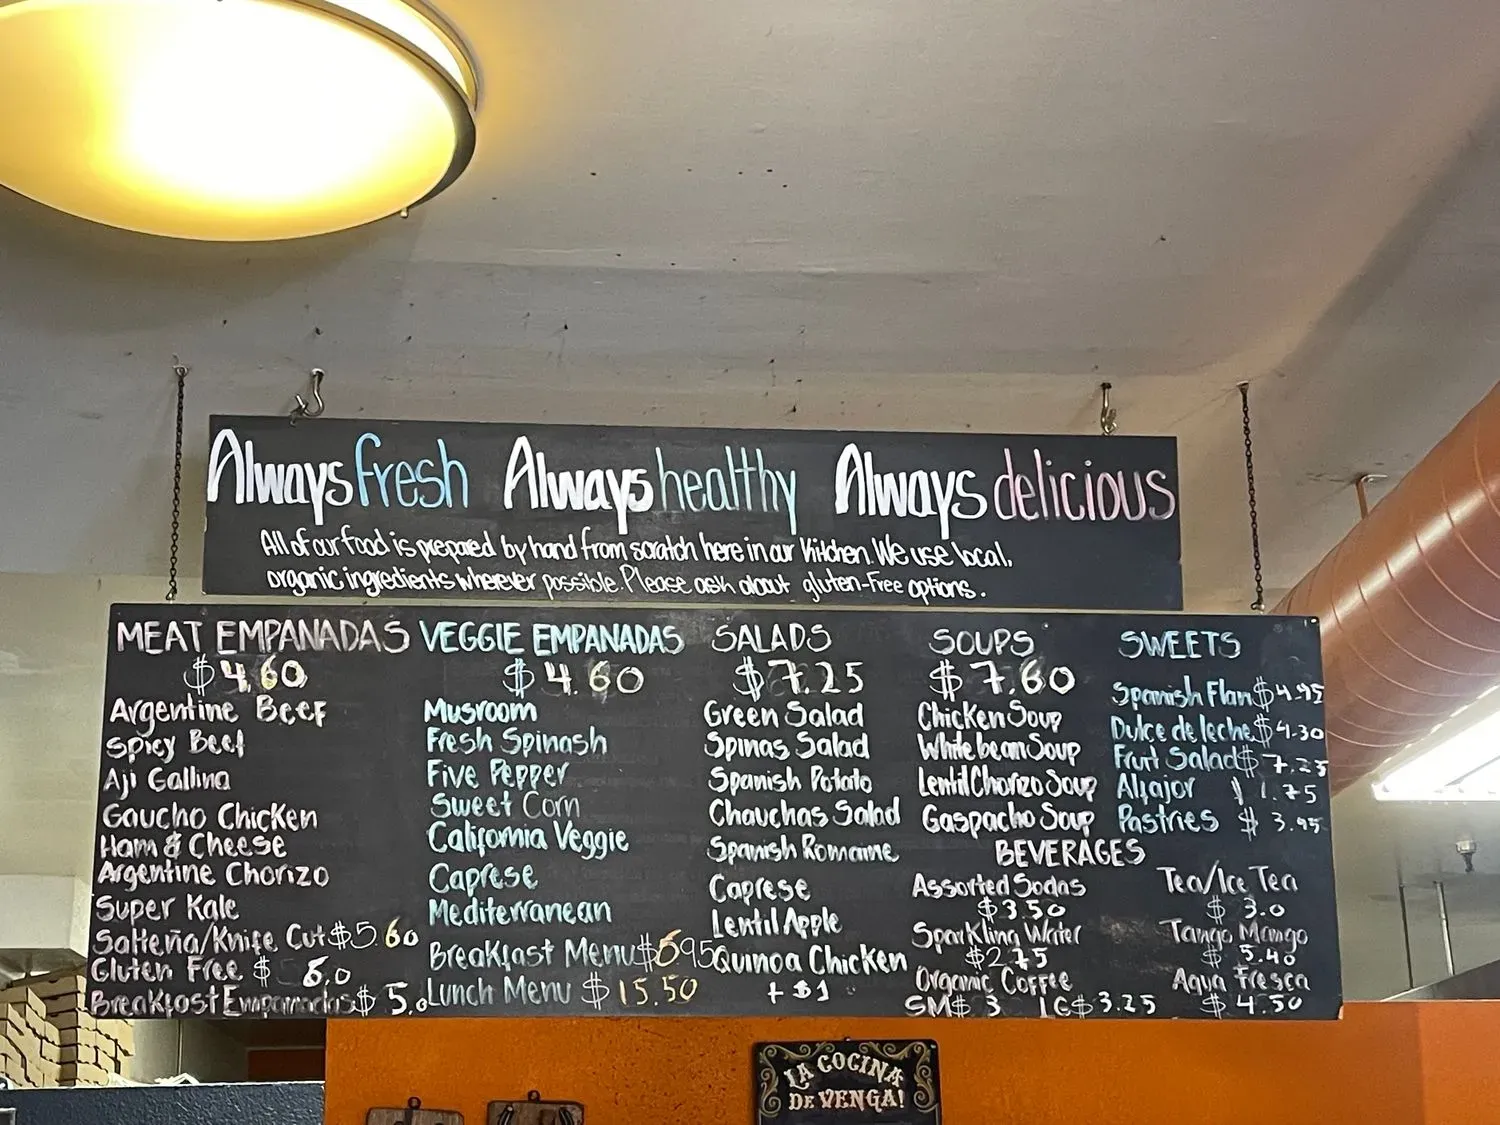 Always fresh Always healthy Always delicious
All of our food is prepared by hand from scratch here in our Kitchen. We use local,
organic ingredients wherever possible. Please ask about gluten-Free options.
MEAT EMPANADAS
$4.60
Argentine Beef
Spicy Beef
Aji Gallina
Gaucho Chicken
Ham & Cheese
Argentine Chorizo
Super Kale
Salteña/Knife Cut $5.60
Gluten Free $ 6.0
Breakfast Empanadas $ 5.0
VEGGIE EMPANADAS
$4.60
Musroom
Fresh Spinash
Five Pepper
Sweet Corn
California Veggie
Caprese
Mediterranean
Breakfast Menu $6.95
Lunch Menu $15.50
SALADS
$7.25
Green Salad
Spinas Salad
Spanish Potato
Chauchas Salad
Spanish Romaine
Caprese
Lentil Apple
Quinoa Chicken
+ $1
SOUPS
$7.60
Chicken Soup
White bean Soup
Lentil Chorizo Soup
Gaspacho Soup
SWEETS
Spanish Flan $4.95
Dulce de leche $4.30
Fruit Salad $7.25
Alfajor 1.75
Pastries $ 3.95
BEVERAGES
Assorted Sodas
$3.50
Sparkling Water
$2.75
Organic Coffee
SM$ 3 LG$3.25
Tea/Ice Tea
$ 3.0
Tango Mango
$ 5.40
Aqua Fresca
$ 4.50
LA COCINA
DE VENGA!